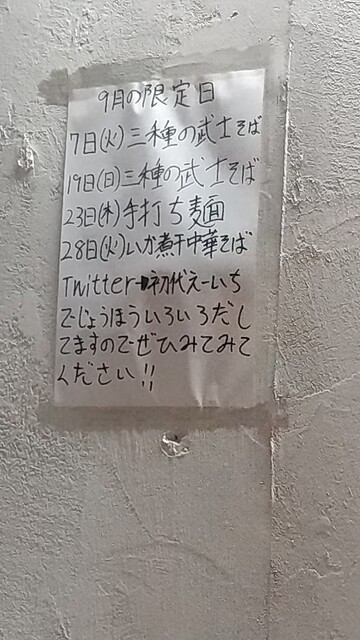 9月の限定日
7日(火)三種の武士そば
19日(日)三種の武士そば
23日(木)手打ち麺
28日(火)いか煮干中華そば
Twitter→初代えーいち
でじょうほういろいろだし
てますのでぜひみてみて
ください!!